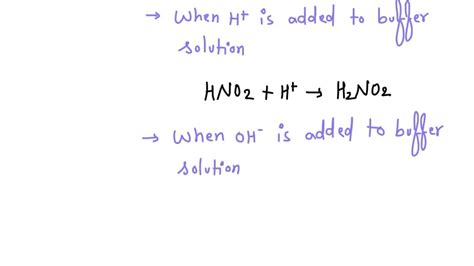 → When H⁺ is added to buffer
solution
HNO₂ + H⁺ → H₂NO₂
→ When OH⁻ is added to buffer
solution